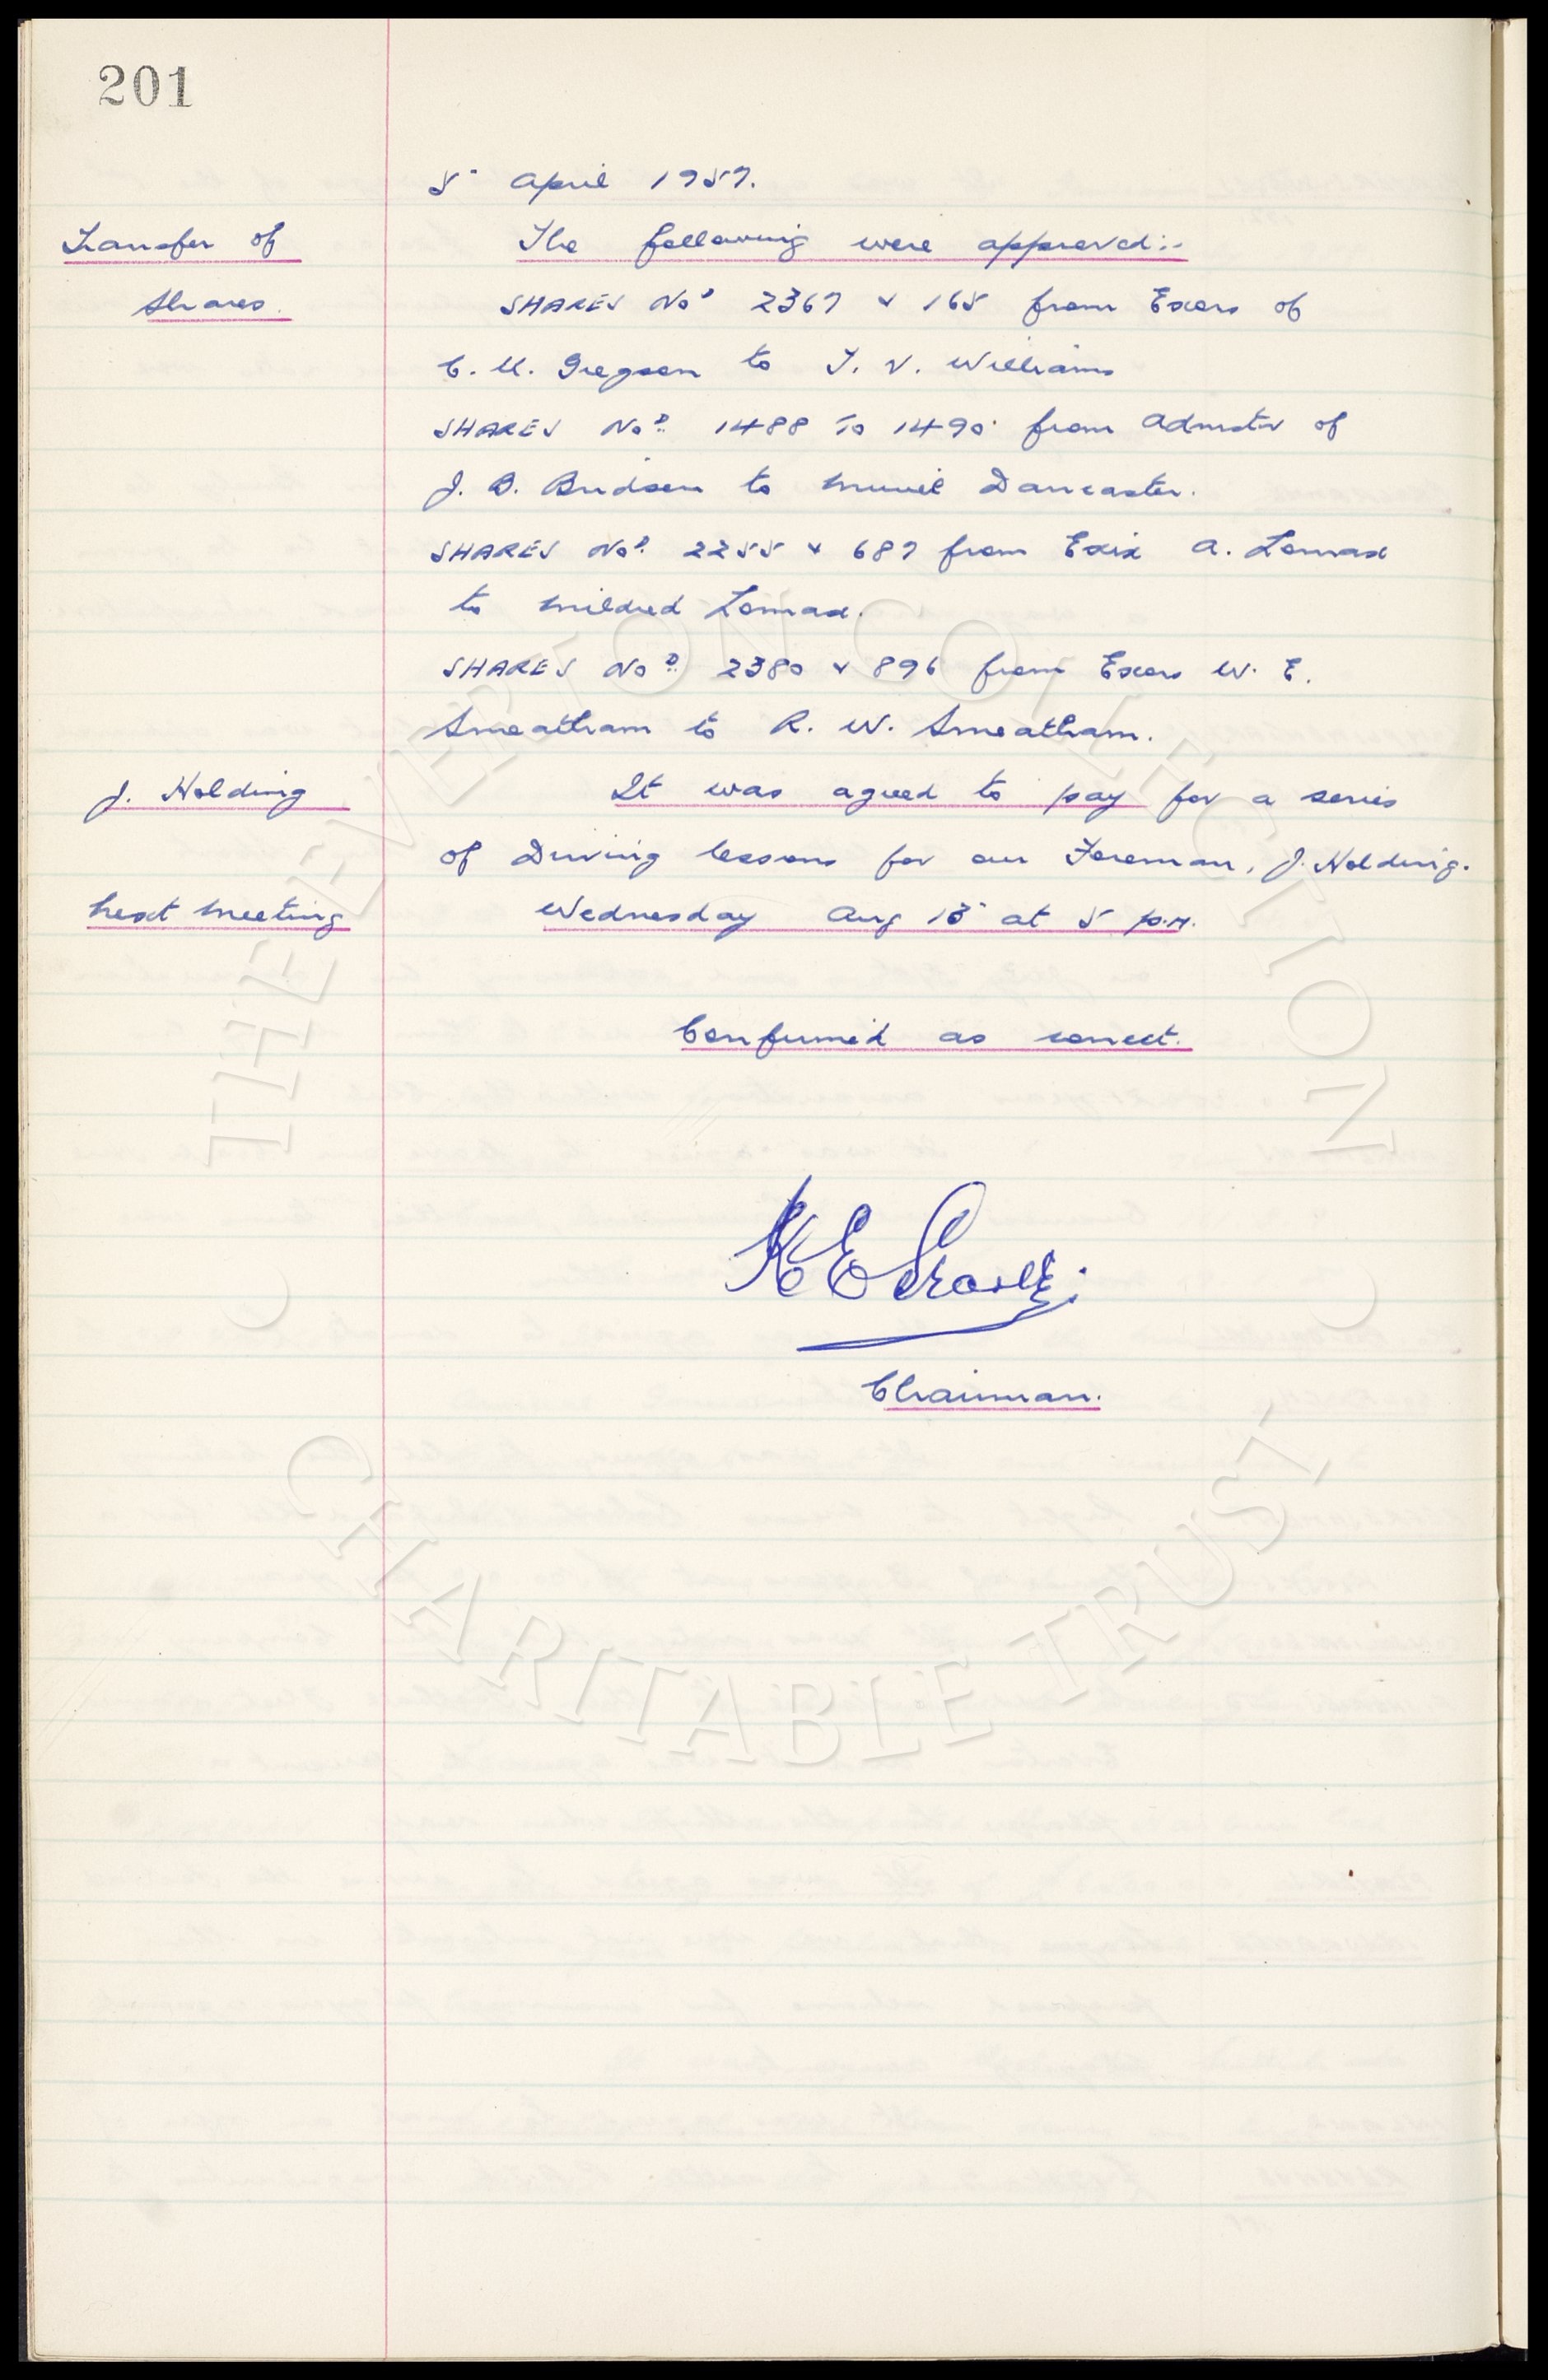 201
5" April 1957.
Transfer of
Shares.
The following were approved:-
SHARES Nos 2367 & 165 from Exors of
C. U. Gregson to T. V. Williams
SHARES Nos. 1488 To 1490 from Admstr of
J. B. Bridson to Muriel Dancaster.
SHARES Nos. 2255 & 687 from Exix A. Lomax
to Mildred Lomax.
SHARES Nos. 2380 & 896 from Exors W. E.
Smeatham to R. W. Smeatham.
J. Holding
It was agreed to pay for a series
of Driving lessons for our Foreman, J. Holding.
Next Meeting
Wednesday Aug at 5 p.m.
Confirmed as correct.
Chairman.
THE EVERTON COLLECTION
CHARITABLE TRUST